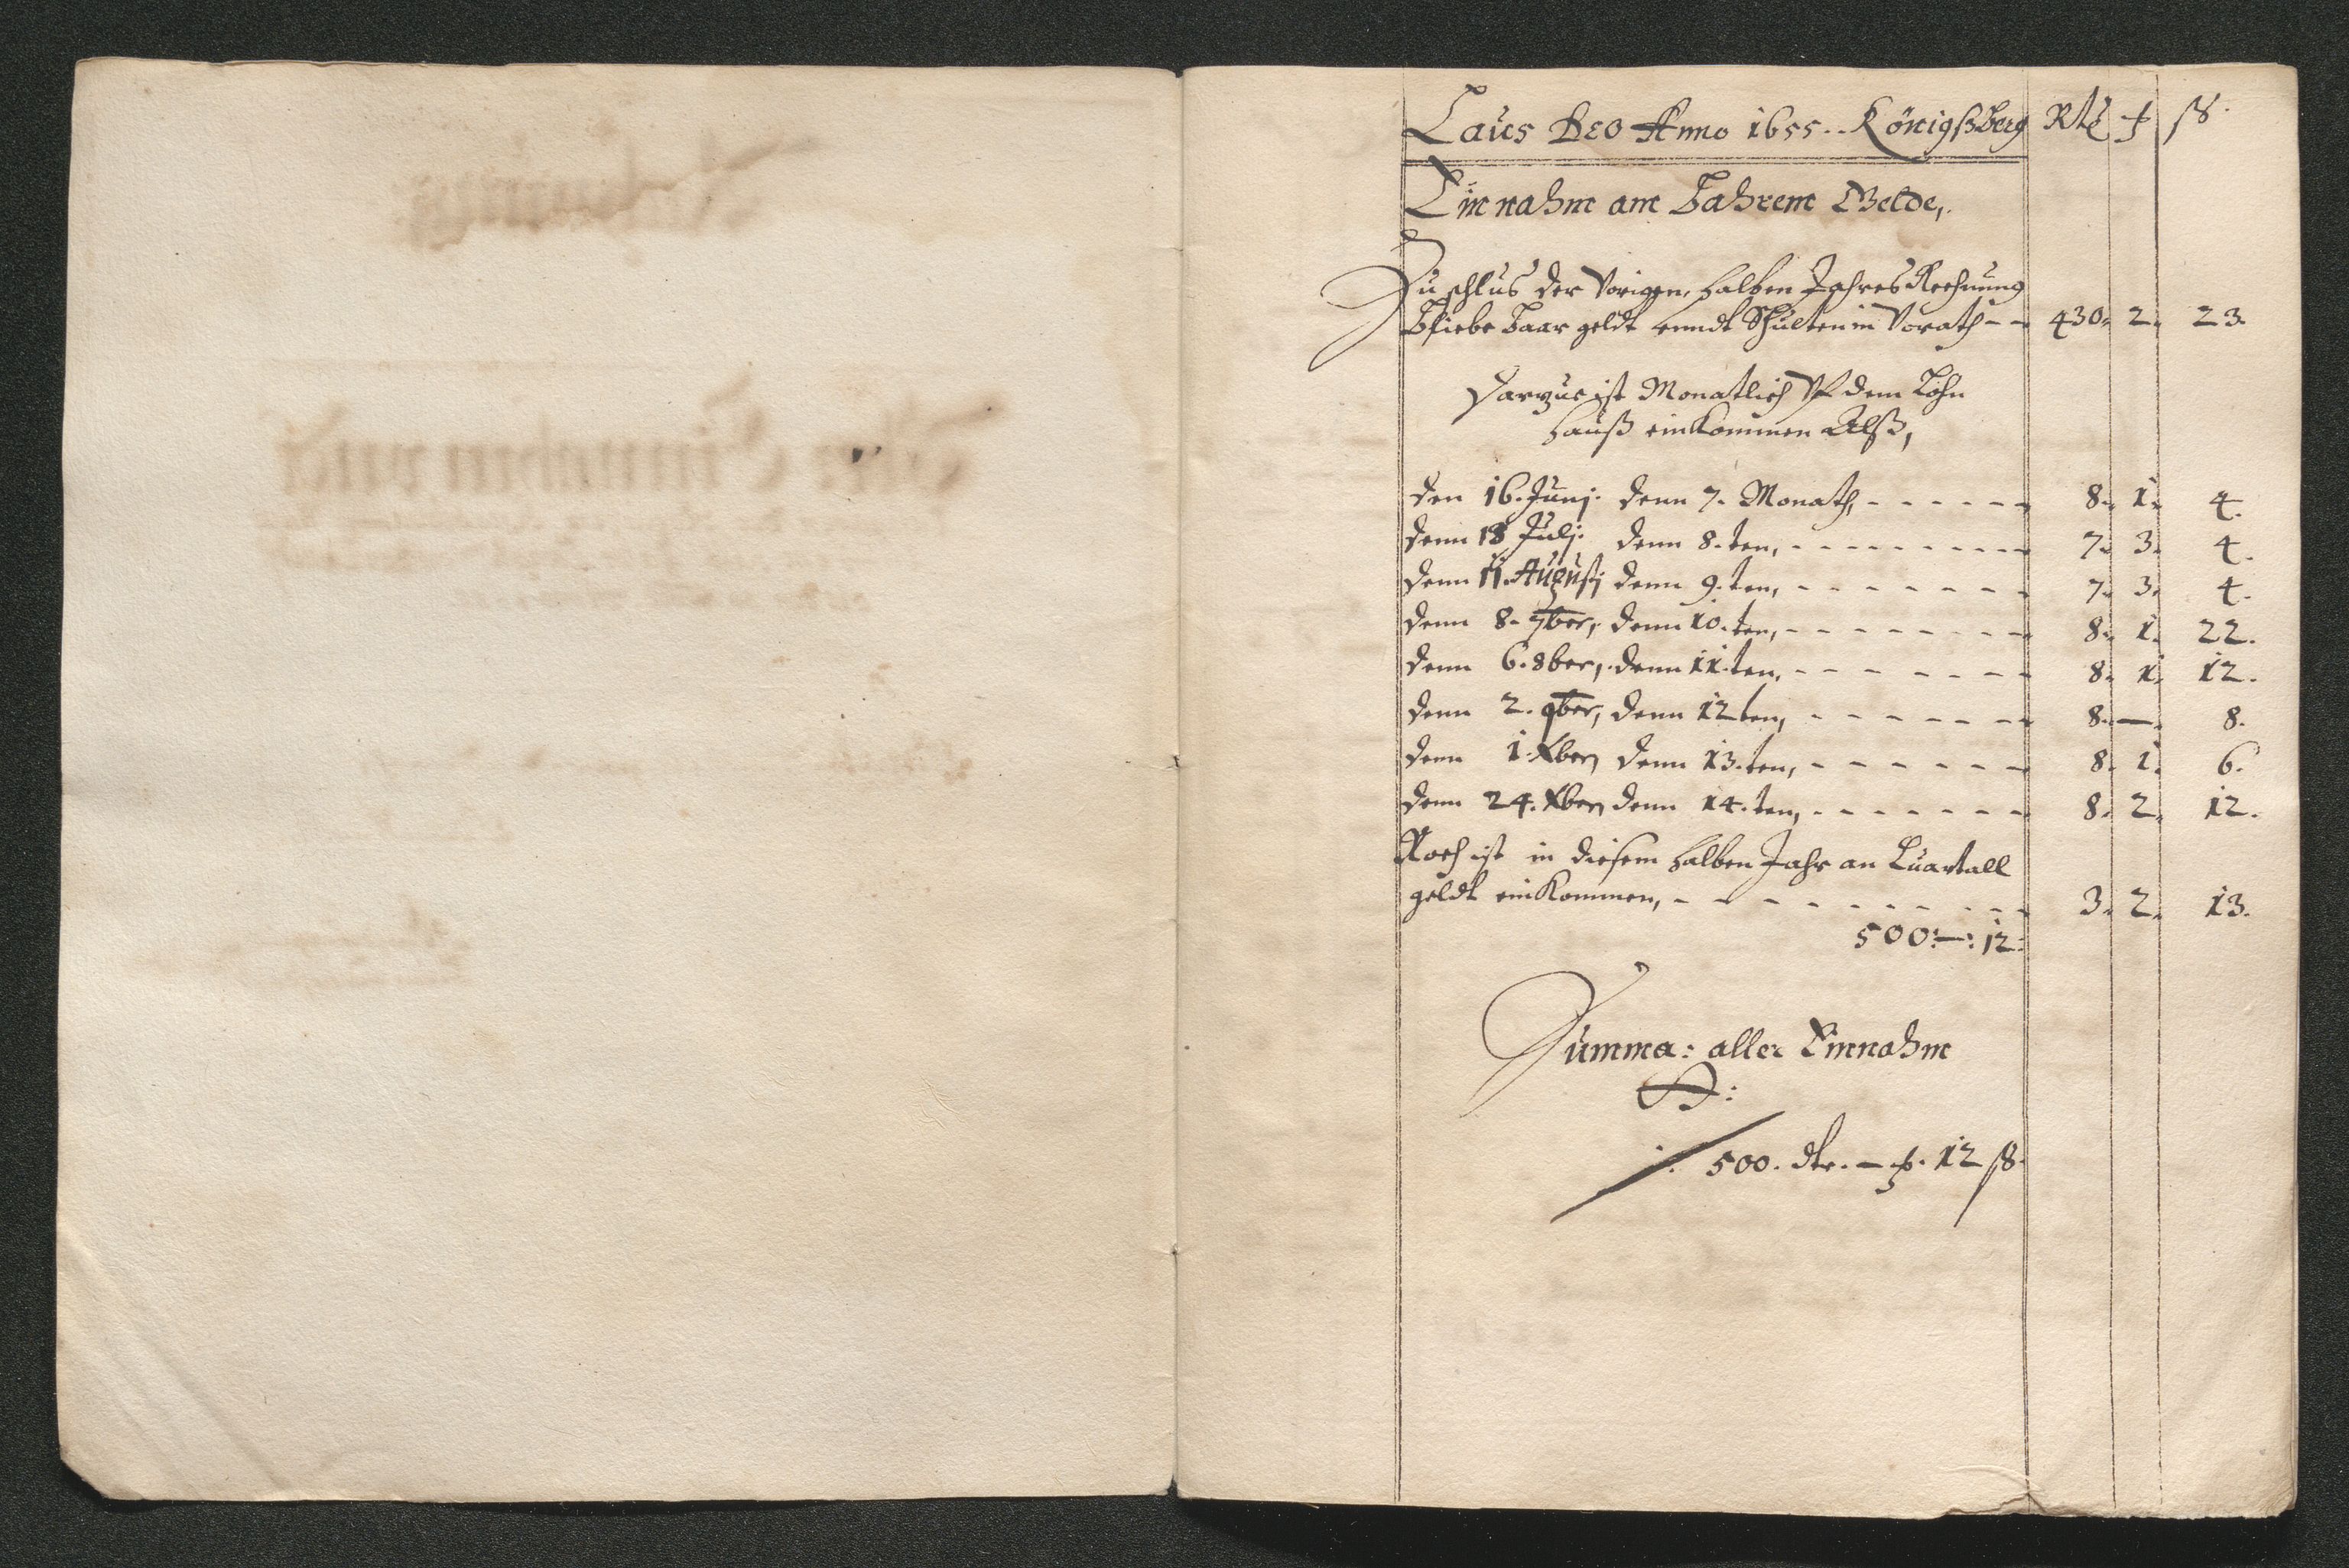 Laus Deo Anno 1655. Königßberg Rtl
Einnahm am Bahrem Gelde,
Zu schlus der Vorigen, halben Jahres Rechnung
Bliebe Baar geldt unndt Schulten in Vorath - - 430. 2. 23.
Darzue ist Monatlich Vf dem Lohn
hauß einkommen Alß,
den 16. Junj. denn 7. Monath, - - - - - - 8. 1. 4.
denn 18 Julj. denn 8. ten, - - - - - - - - - 7. 3. 4.
denn 11. Augustj denn 9. ten, - - - - - - - 7. 3. 4.
denn 8. 7ber, denn 10. ten, - - - - - - - - 8. 1. 22.
denn 6. 8ber, denn 11. ten, - - - - - - - 8. 1. 12.
denn 2. 9ber, denn 12 ten, - - - - - - - 8. — 8.
denn 1. Xber, denn 13. ten, - - - - - - - 8. 1. 6.
denn 24. Xber, denn 14. ten, - - - - - - - 8. 2. 12.
Noch ist in diesem halben Jahr an Quartall
geldt einkommen, - - - - - - - - - 3. 2. 13.
500:—: 12:
Summa: aller Einnahm
500. dlr. — 12 ß.